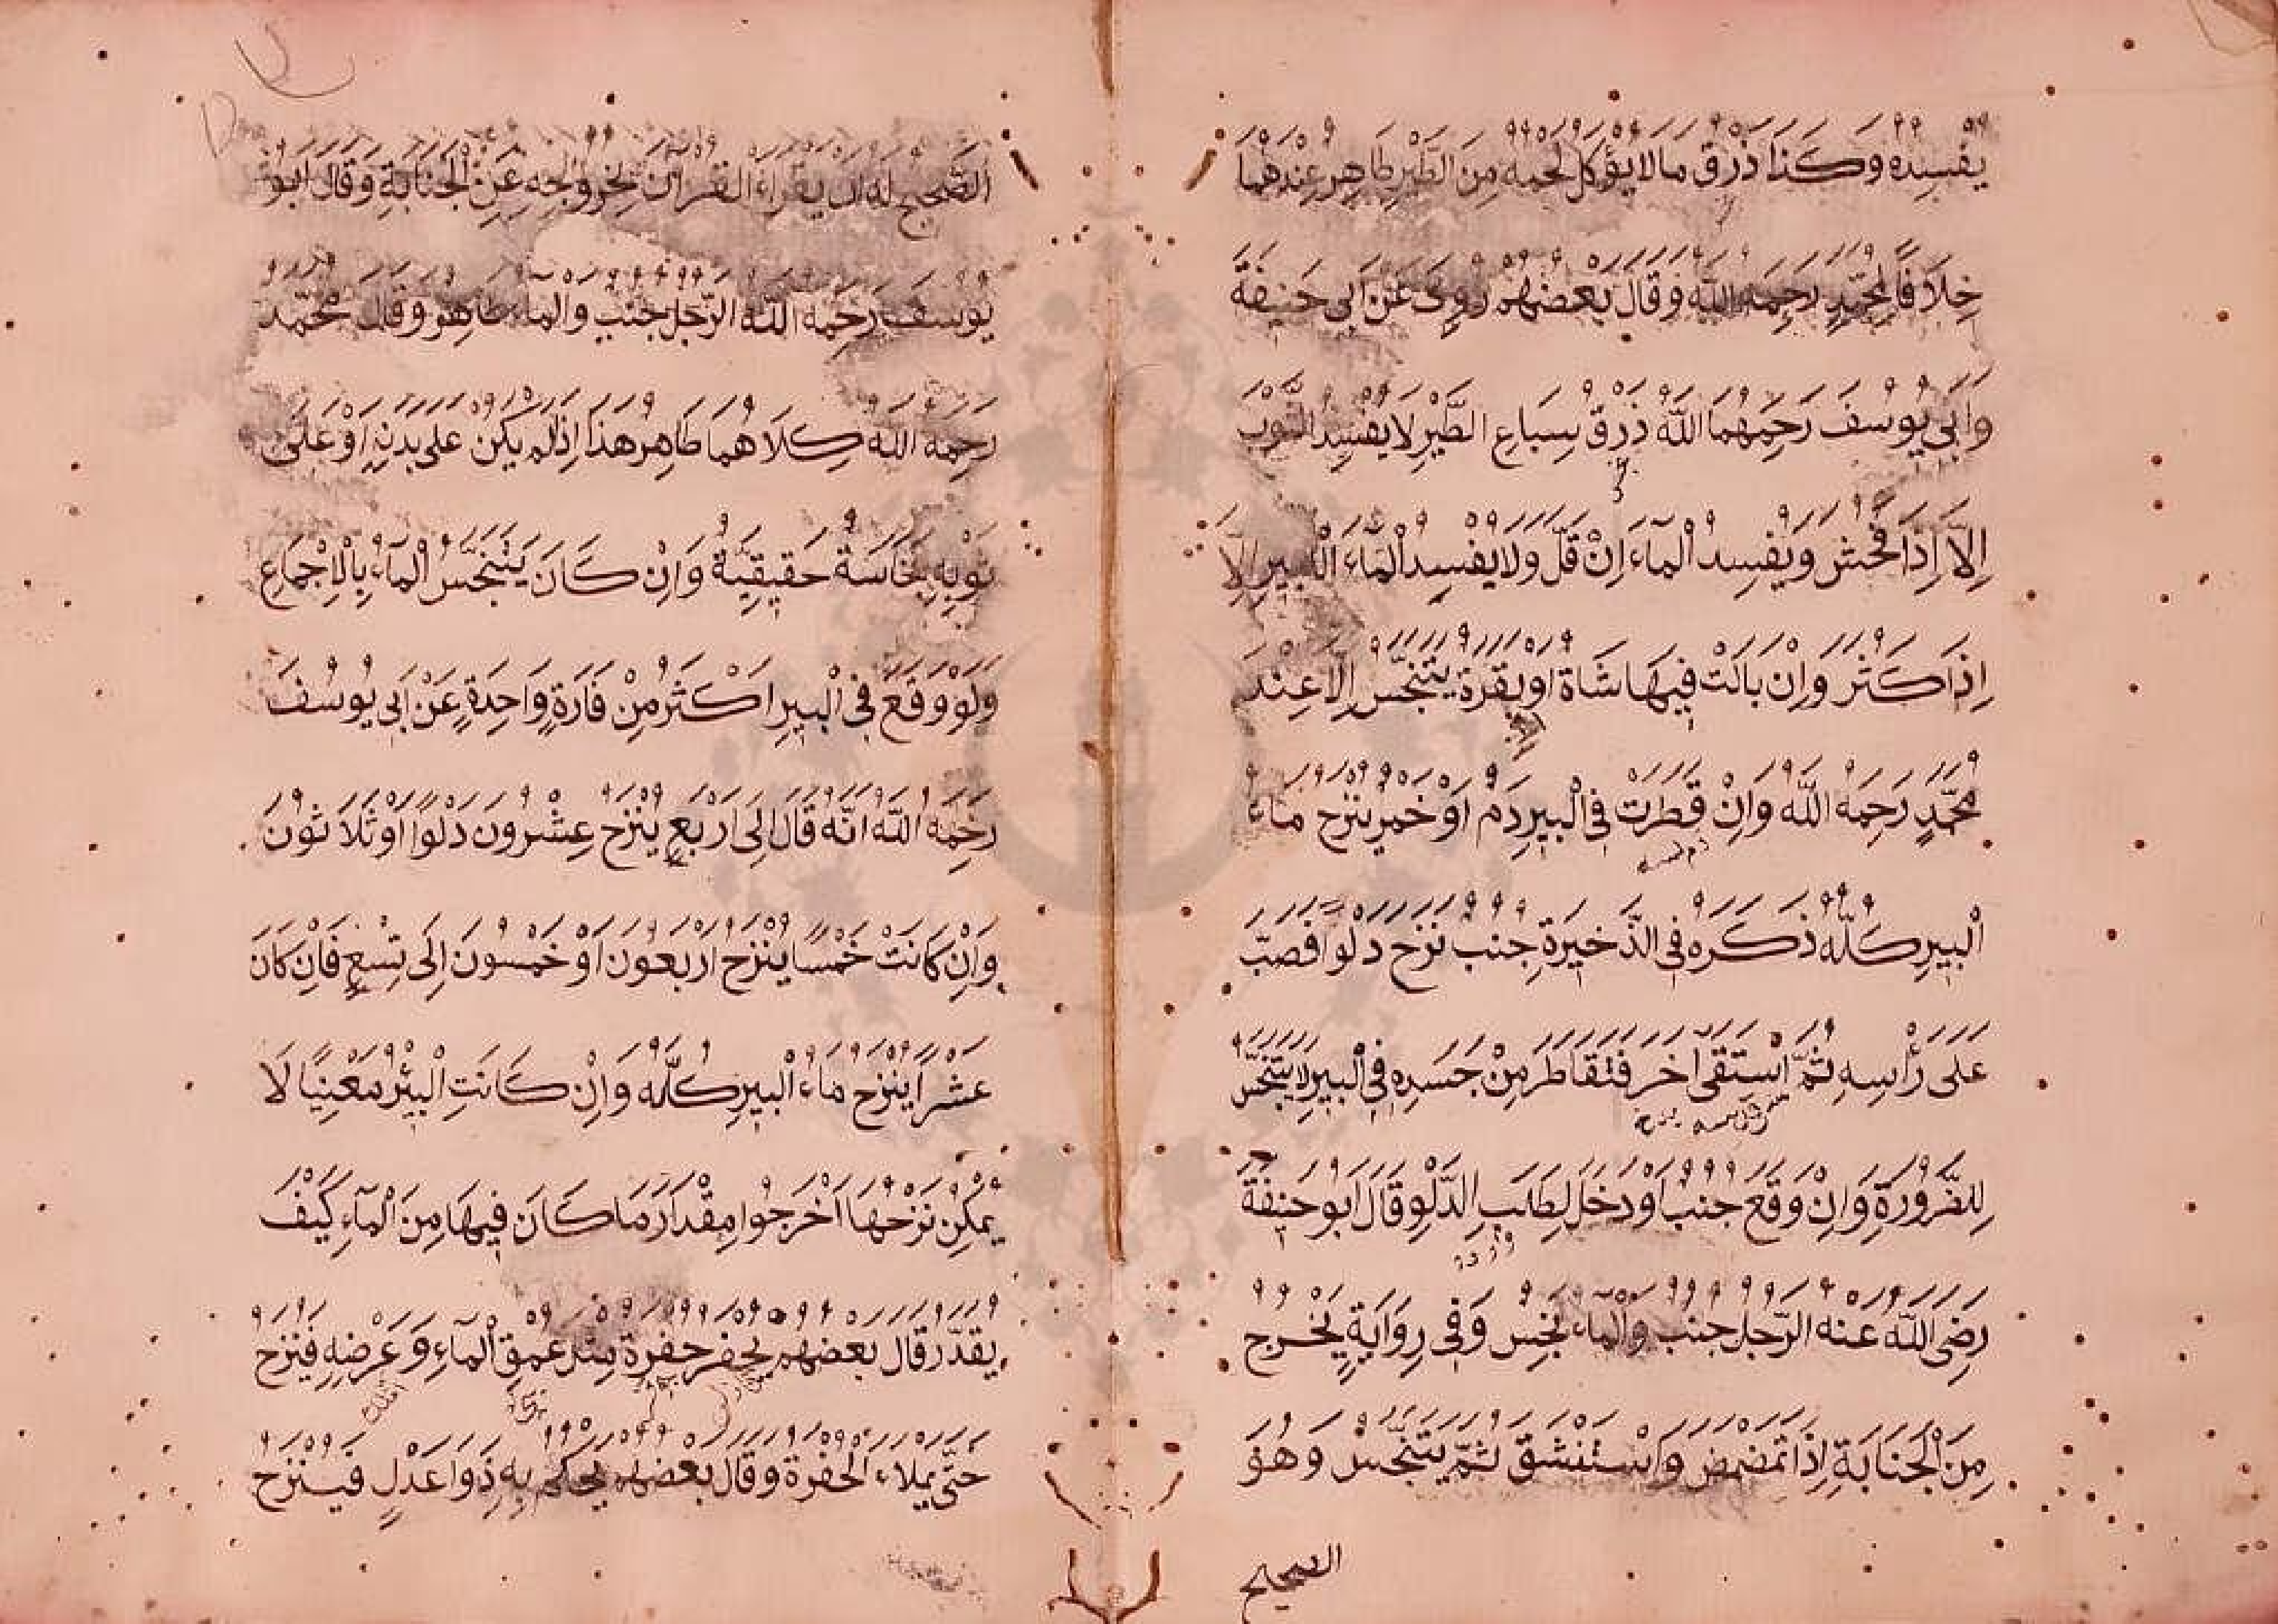 يُفْسِدُهُ وَكَذَا ذَرْقُ مَالَا يُؤْكَلُ لَحْمُهُ مِنَ الطَّيْرِ طَاهِرٌ عِنْدَهُمَا
خِلَافًا لِمُحَمَّدٍ رَحِمَهُ اللّٰهُ وَقَالَ بَعْضُهُمْ رُوِىَ عَنْ اَبِى حَنِيفَةَ
وَاَبِى يُوسُفَ رَحِمَهُمَا اللّٰهُ ذَرْقُ سِبَاعِ الطَّيْرِ لَا يُفْسِدُ الثَّوْبَ
اِلَّا اِذَا فَحُشَ وَيُفْسِدُ الْمَآءَ اِنْ قَلَّ وَلَا يُفْسِدُ الْمَآءَ الْكَبِيرِ اِلَّا
اِذَا كَثُرَ وَاِنْ بَالَتْ فِيهَا شَاةٌ اَوْ بَقَرَةٌ يَتَنَجَّسُ اِلَّا عِنْدَ
مُحَمَّدٍ رَحِمَهُ اللّٰهُ وَاِنْ قَطَرَتْ فِى الْبِيرِ دَمٌ اَوْ خَمْرٌ يُنْزَحُ مَاءُ
الْبِيرِ كُلُّهُ ذَكَرَهُ فِى الذَّخِيرَةِ جُنُبٌ نَزَحَ دَلْوًا فَصَبَّ
عَلَى رَأْسِهِ ثُمَّ اسْتَقَى اٰخَرَ فَتَقَاطَرَ مِنْ جَسَدِهِ فِى الْبِيرِ لَا يَتَنَجَّسُ
لِلضَّرُورَةِ وَاِنْ وَقَعَ جُنُبٌ اَوْ دَخَلَ لِطَلَبِ الدَّلْوِ قَالَ اَبُو حَنِيفَةَ
رَضِىَ اللّٰهُ عَنْهُ الرَّجُلُ جُنُبٌ وَالْمَآءُ نَجِسٌ وَفِى رِوَايَةٍ يَخْرُجُ
مِنَ الْجَنَابَةِ اِذَا تَمَضْمَضَ وَاسْتَنْشَقَ ثُمَّ يَتَنَجَّسُ وَهُوَ
الصحيح
الصَّحِيحُ لَهُ اَنْ يَقْرَاءَ الْقُرْاٰنَ لِخُرُوجِهِ عَنِ الْجَنَابَةِ وَقَالَ اَبُو
يُوسُفَ رَحِمَهُ اللّٰهُ الرَّجُلُ جُنُبٌ وَالْمَآءُ طَاهِرٌ وَقَالَ مُحَمَّدٌ
رَحِمَهُ اللّٰهُ كِلَاهُمَا طَاهِرٌ هٰذَا اِذَا لَمْ يَكُنْ عَلَى بَدَنِهِ اَوْ عَلَى
ثَوْبِهِ نَجَاسَةٌ حَقِيقِيَّةٌ وَاِنْ كَانَ يَتَنَجَّسُ الْمَآءُ بِالْاِجْمَاعِ
وَلَوْ وَقَعَ فِى الْبِيرِ اَكْثَرُ مِنْ فَارَةٍ وَاحِدَةٍ عَنْ اَبِى يُوسُفَ
رَحِمَهُ اللّٰهُ اَنَّهُ قَالَ اِلَى اَرْبَعٍ يُنْزَحُ عِشْرُونَ دَلْوًا اَوْ ثَلَاثُونَ
وَاِنْ كَانَتْ خَمْسًا يُنْزَحُ اَرْبَعُونَ اَوْ خَمْسُونَ اِلَى تِسْعٍ فَاِنْ كَانَ
عَشْرًا يُنْزَحُ مَاءُ الْبِيرِ كُلُّهُ وَاِنْ كَانَتِ الْبِئْرُ مَعْنِيًّا لَا
يُمْكِنُ نَزْحُهَا اَخْرَجُوا مِقْدَارَ مَا كَانَ فِيهَا مِنَ الْمَآءِ كَيْفَ
يُقَدَّرُ قَالَ بَعْضُهُمْ يُحْفَرُ حُفْرَةٌ مِثْلُ عُمْقِ الْمَآءِ وَعَرْضِهِ فَيُنْزَحُ
حَتَّى يَمْلَاءَ الْحُفْرَةَ وَقَالَ بَعْضُهُمْ يَحْكُمُ بِهِ ذَوَا عَدْلٍ فَيُنْزَحُ